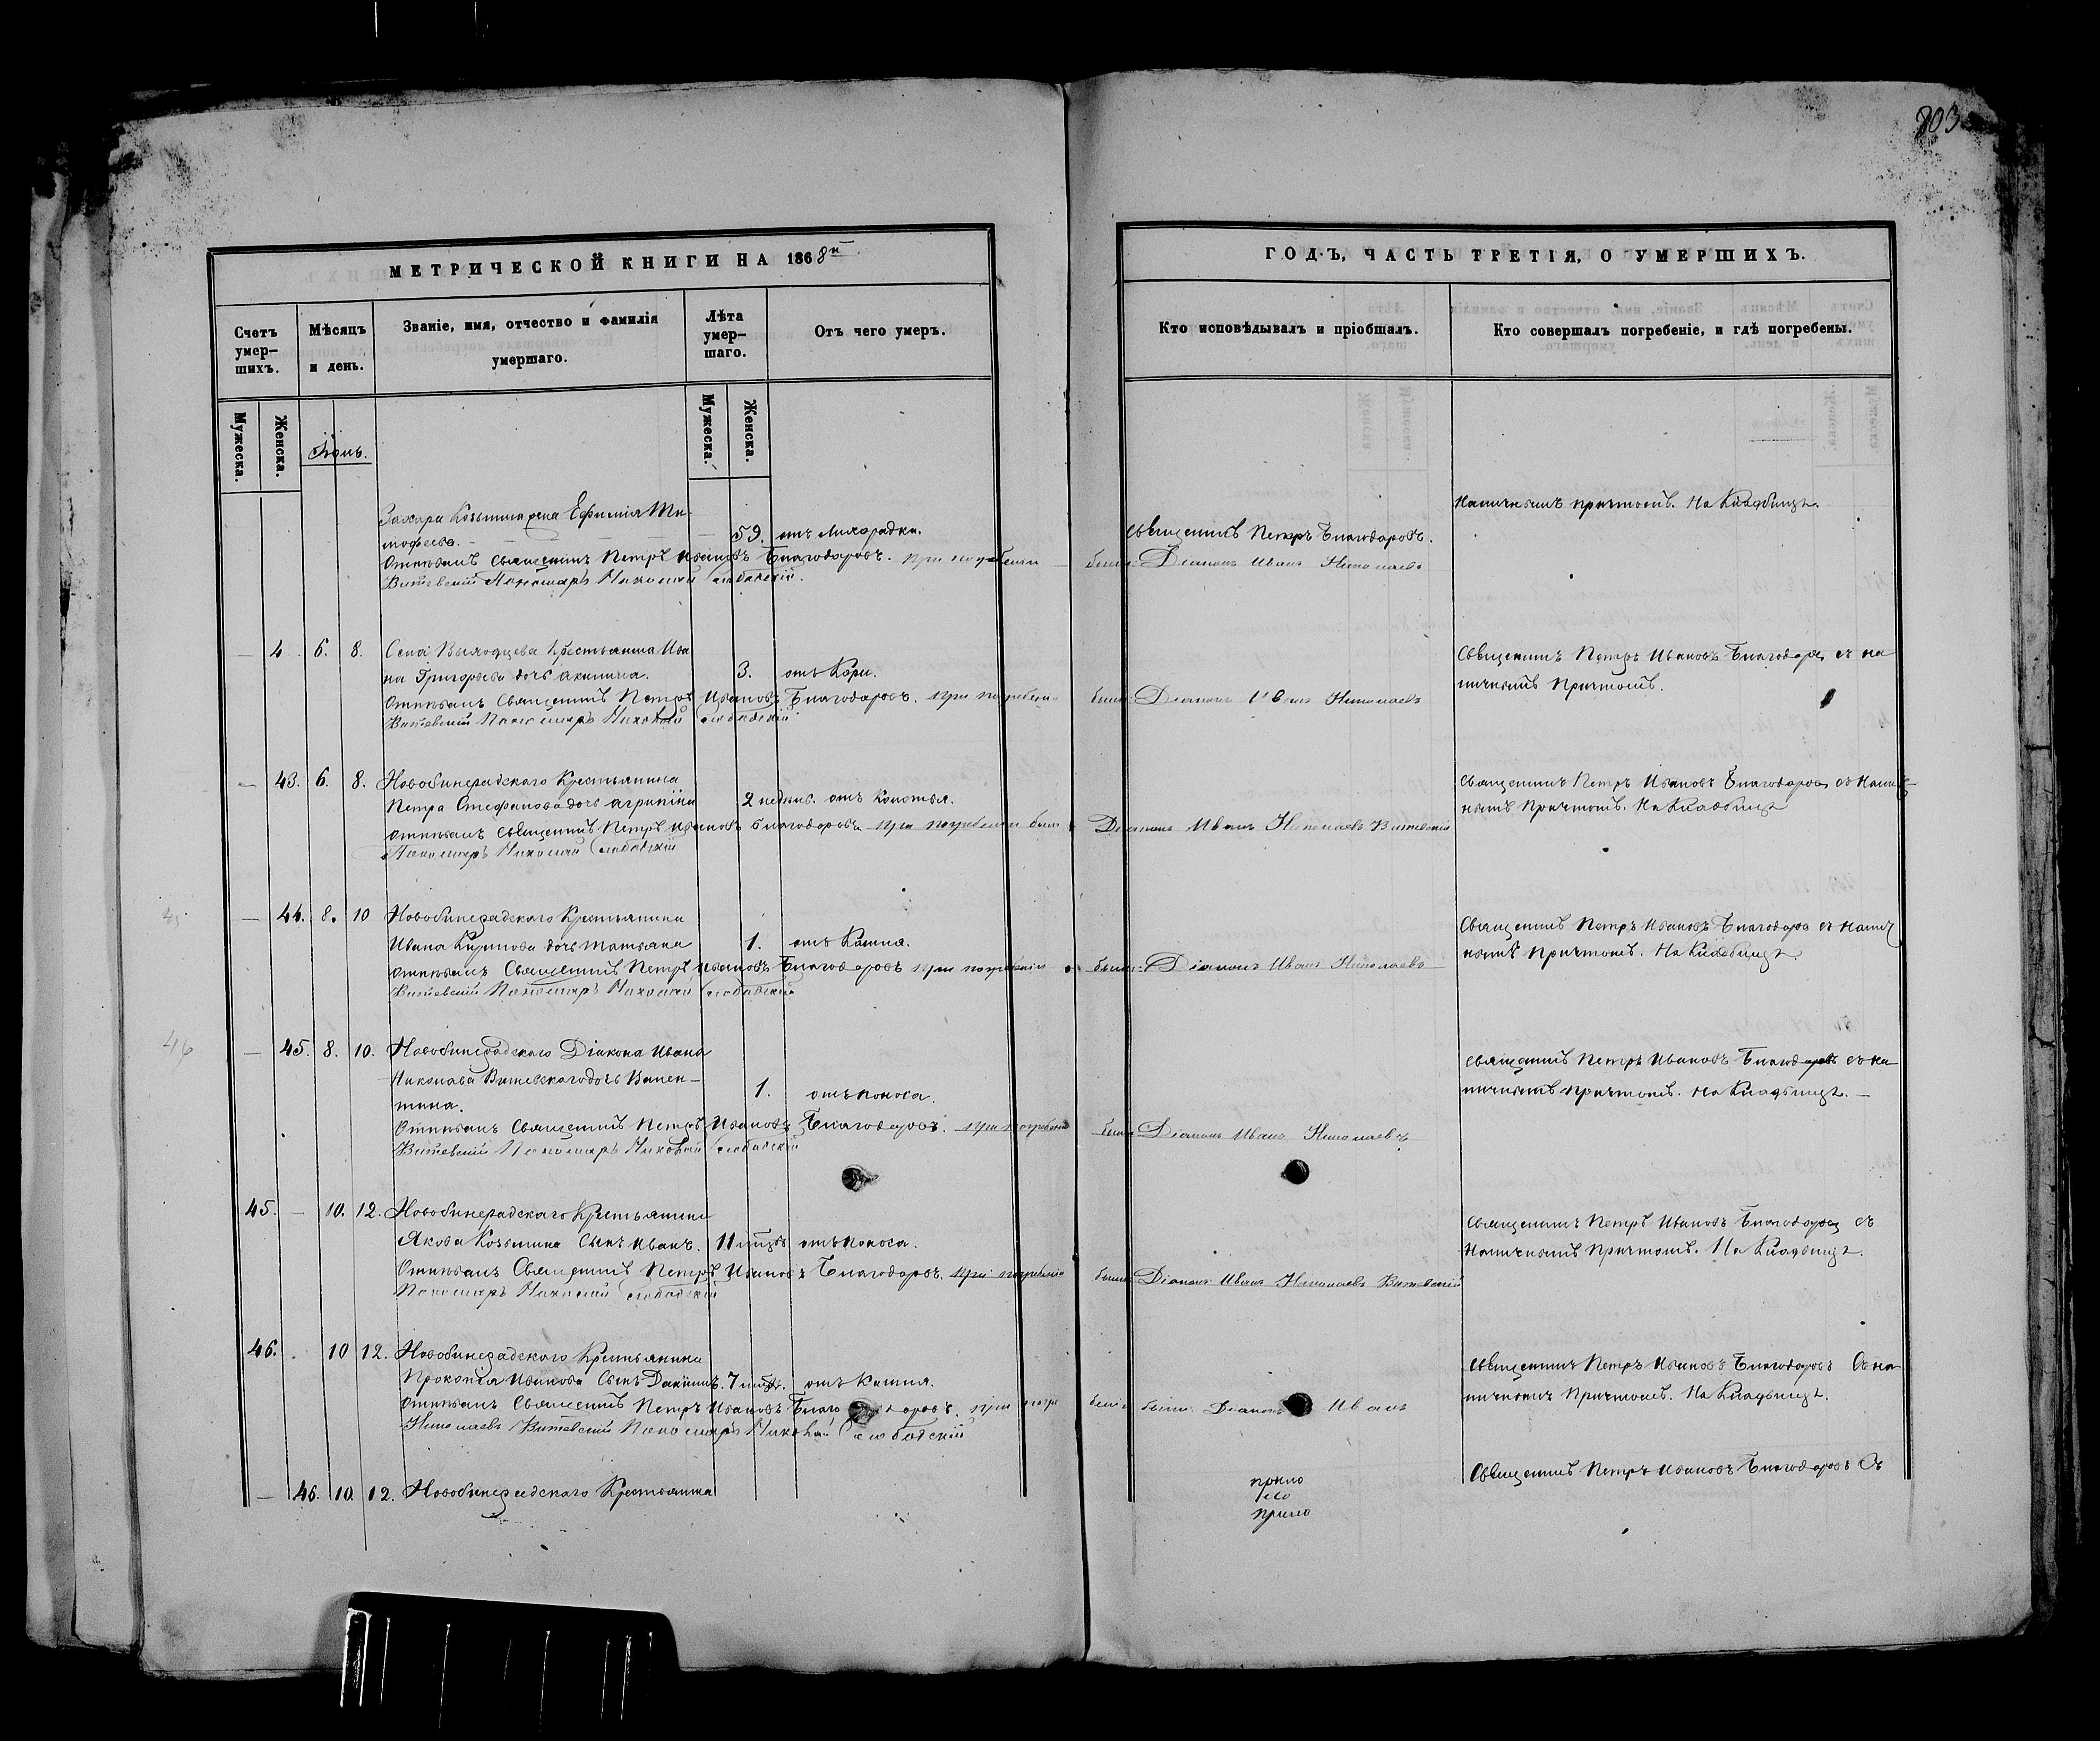 803
МЕТРИЧЕСКОЙ КНИГИ НА 1868й
ГОДЪ, ЧАСТЬ ТРЕТІЯ, О УМЕРШИХЪ.
Счетъ умер-шихъ.
Мѣсяцъ и день.
Званіе, имя, отчество и фамилія умершаго.
Лѣта умер-шаго.
Отъ чего умеръ.
Кто исповѣдывалъ и пріобщалъ.
Кто совершалъ погребеніе, и гдѣ погребены.
Мужеска.
Женска.
Мужеска.
Женска.
Захара Козьмина жена Ефимія Ти-
мофеева. 59. отъ лихорадки. Священникъ Петръ Благодаровъ.
личнымъ причтомъ. На Кладбищѣ.
Отпѣвалъ Священникъ Петръ Ивановъ Благодаровъ. при погребеніи были: Діаконъ Иванъ Николаевъ
Витевскій Пономарь Николай Слободскій.
4 6. 8. Села Выходцева Крестьянина Ива
на Григорьева дочь Акилина. 3. отъ Кори.
Священникъ Петръ Ивановъ Благодаров съ на
личнымъ Причтомъ.
Отпѣвалъ Священникъ Петръ Ивановъ Благодаровъ. при погребен были: Діаконъ Иванъ Николаевъ
Витевскій Пономарь Николай Слободскій.
— 43. 6. 8. Новобинерадскаго Крестьянина
Петра Стефанова дочь Агрипіна 2 недѣл. отъ
Священникъ Петръ Ивановъ Благодаров съ налич-
нымъ Причтомъ. На Кладбищѣ
Отпѣвалъ Священникъ Петръ Ивановъ Благодаровъ при погребеніи были Діаконъ Иванъ Николаевъ Витевскій
Пономарь Николай Слободскій
— 44. 8. 10 Новобинерадскаго Крестьянина
Ивана Кирилова дочь Татьяна 1. отъ Кашля.
Священникъ Петръ Ивановъ Благодаров съ налич
нымъ Причтомъ. На Кладбищѣ
Отпѣвалъ Священникъ Петръ Ивановъ Благодаровъ при погребеніи были: Діаконъ Иванъ Николаевъ
Витевскій Пономарь Николай Слободскій
46
— 45. 8. 10. Новобинерадскаго Діакона Ивана
Николаева Витевскаго дочь Вален-
тина. 1. отъ поноса.
Священникъ Петръ Ивановъ Благодаровъ съ на
личнымъ причтомъ. На Кладбищѣ. —
Отпѣвалъ Священникъ Петръ Ивановъ Благодаровъ. при погребеніи были Діаконъ Иванъ Николаевъ
Витевскій Пономарь Николай Слободскій
45. — 10. 12. Новобинерадскаго Крестьянина
Якова Козьмина Сынъ Иванъ. 11 мѣсяцъ отъ поноса.
Священникъ Петръ Ивановъ Благодаров съ
Наличнымъ Причтомъ. На Кладбищѣ.
Отпѣвалъ Священникъ Петръ Ивановъ Благодаровъ. при погребеніи были Діаконъ Иванъ Николаевъ Витевскій
Пономарь Николай Слободскій
46. 10 12. Новобинерадскаго Крестьянина
Прокопія Иванова Сынъ Даніилъ. 7 отъ Кашля.
Священникъ Петръ Ивановъ Благодаровъ Съ на
личнымъ Причтомъ. На Кладбищѣ.
Отпѣвалъ Священникъ Петръ Ивановъ Благодаровъ. при погребеніи были: Діаконъ Иванъ
Николаевъ Витевскій Пономарь Николай Слободскій
— 46. 10. 12. Новобинерадскаго Крестьянина
Священникъ Петръ Ивановъ Благодаровъ Съ